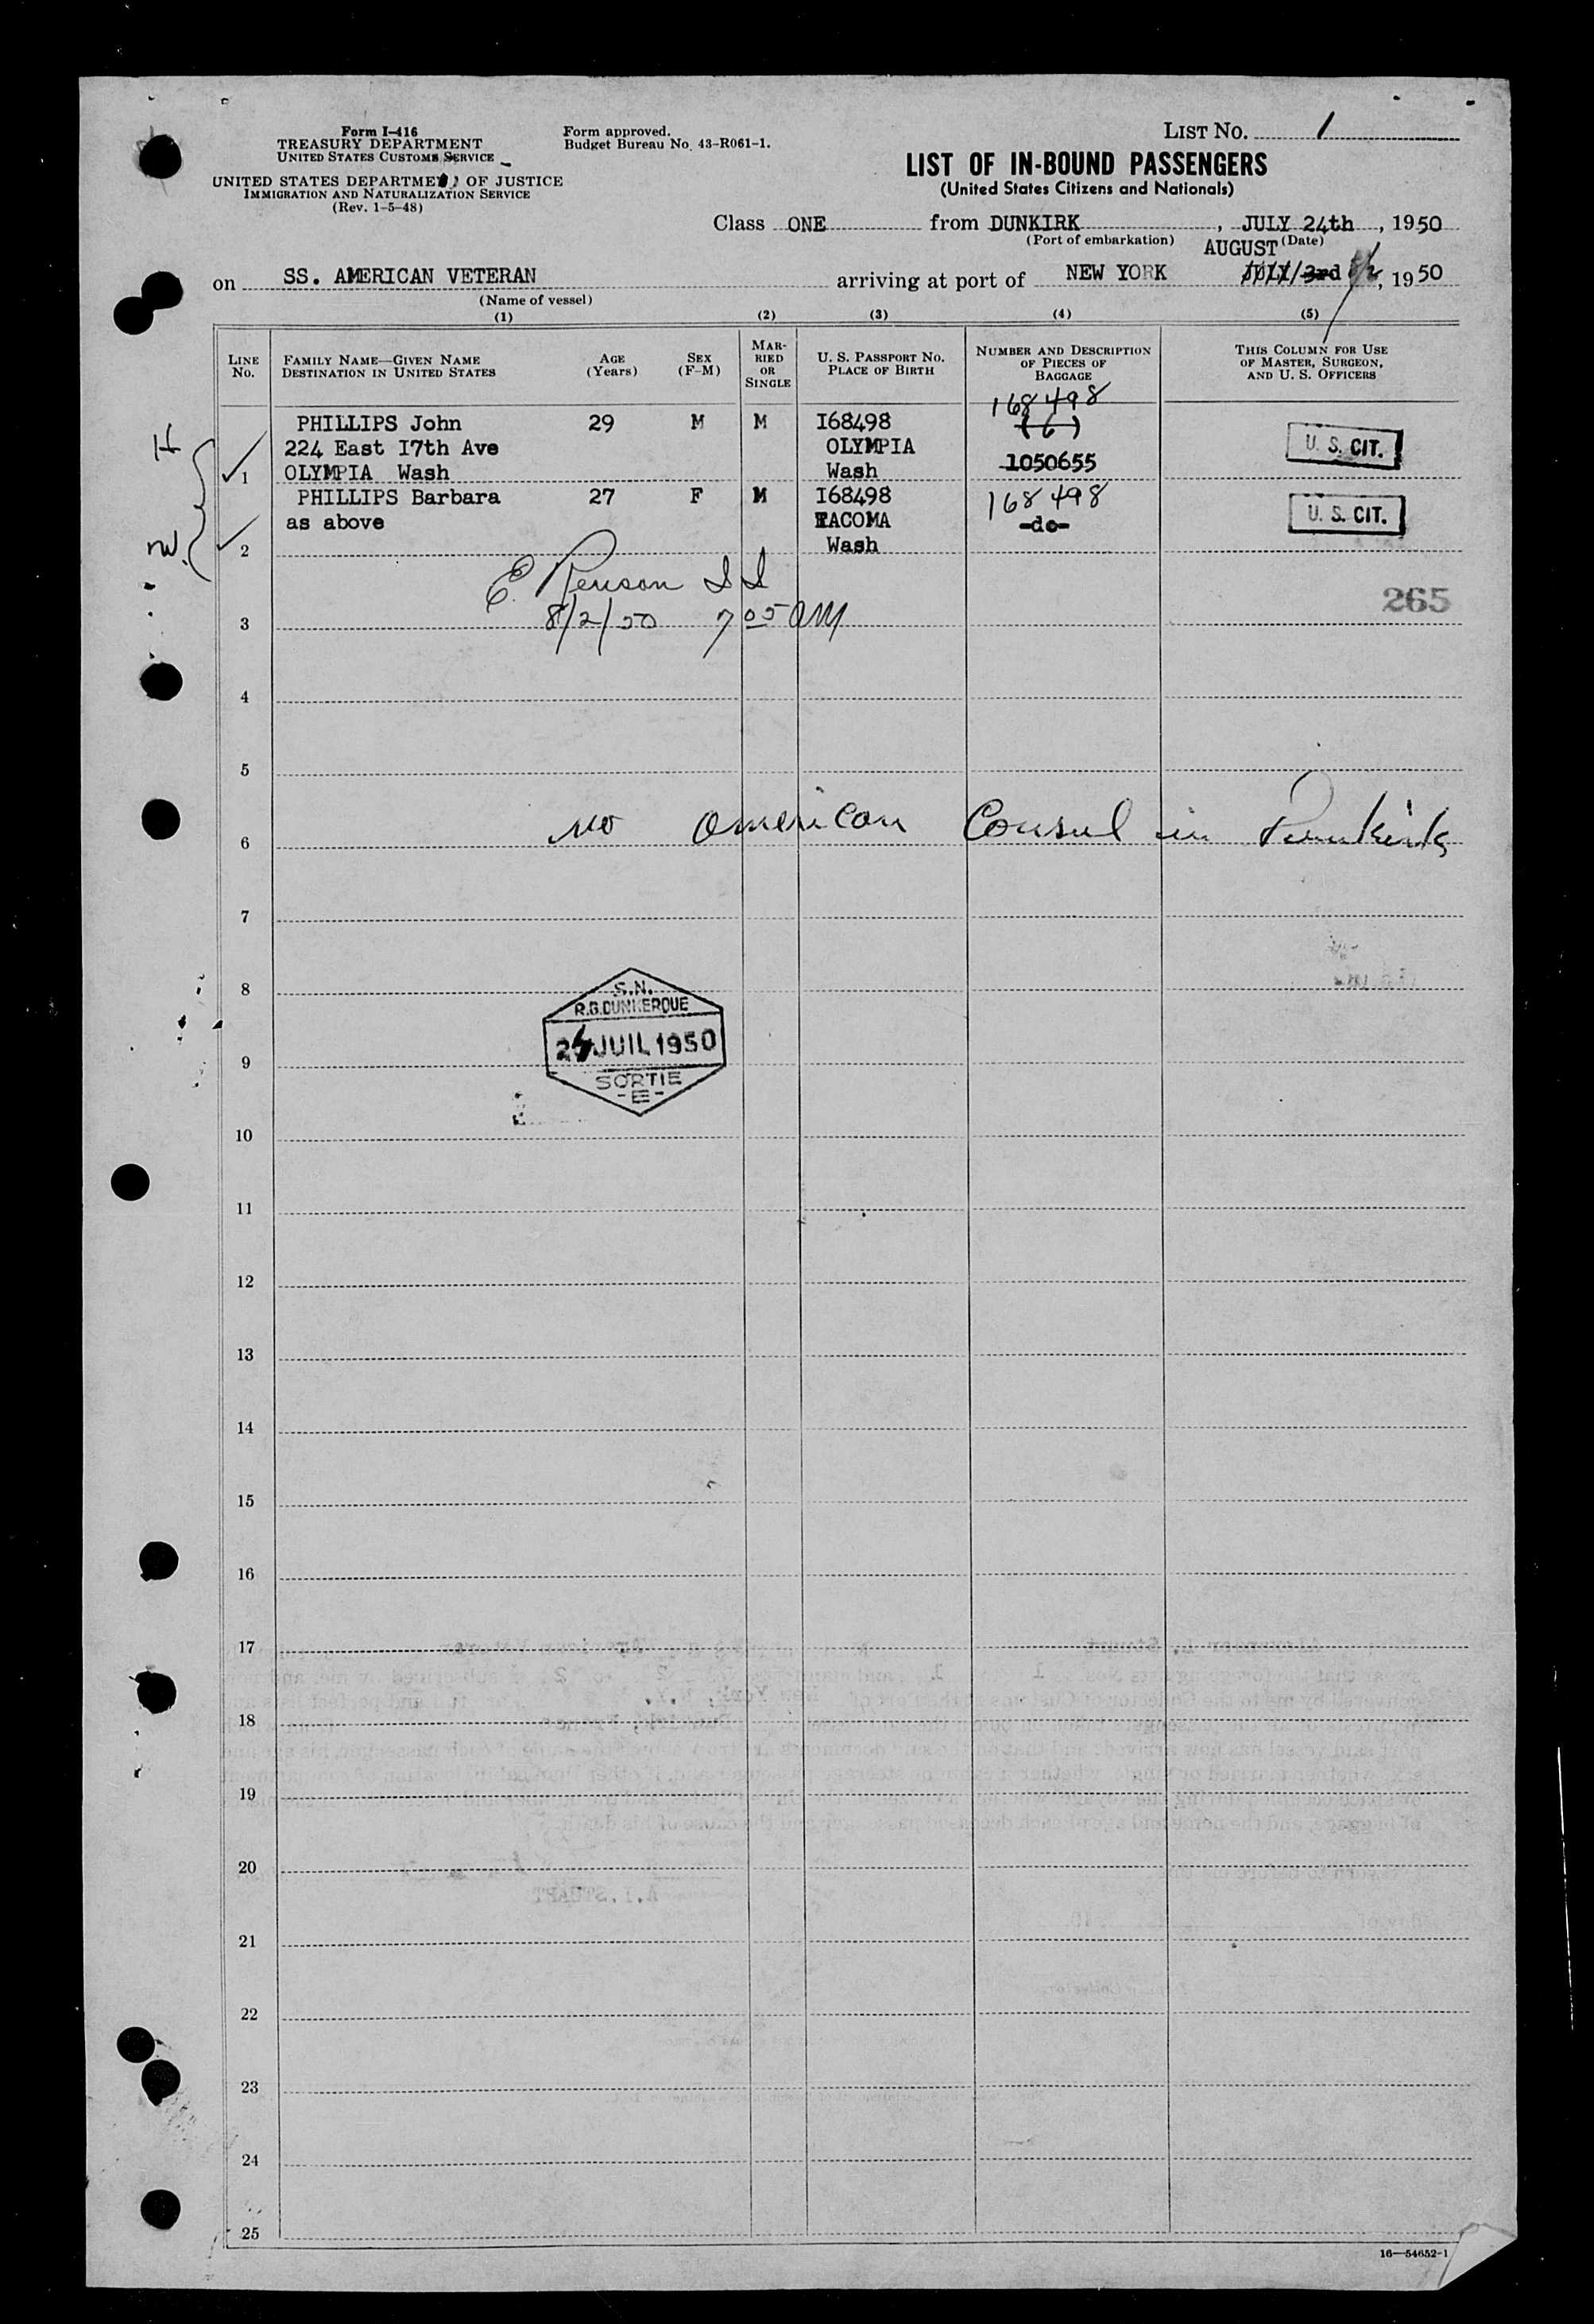 Form I-416
TREASURY DEPARTMENT
UNITED STATES CUSTOMS SERVICE
UNITED STATES DEPARTMENT OF JUSTICE
IMMIGRATION AND NATURALIZATION SERVICE
(Rev. 1-5-48)
Form approved.
Budget Bureau No. 43-R061-1.
LIST NO. 1
LIST OF IN-BOUND PASSENGERS
(United States Citizens and Nationals)
Class ONE from DUNKIRK, JULY 24th, 1950
(Port of embarkation) (Date)
AUGUST
on SS. AMERICAN VETERAN arriving at port of NEW YORK JULY 3rd, 1950
(Name of vessel)
(1) (2) (3) (4) (5)
LINE No.
FAMILY NAME—GIVEN NAME
DESTINATION IN UNITED STATES
AGE (Years)
SEX (F-M)
MARRIED OR SINGLE
U. S. PASSPORT NO.
PLACE OF BIRTH
NUMBER AND DESCRIPTION OF PIECES OF BAGGAGE
THIS COLUMN FOR USE OF MASTER, SURGEON, AND U. S. OFFICERS
168498
PHILLIPS John 29 M M I68498 (6)
224 East I7th Ave OLYMPIA U. S. CIT.
1 OLYMPIA Wash Wash 1050655
PHILLIPS Barbara 27 F M I68498 168498
as above TACOMA -do- U. S. CIT.
2 Wash
H
W.
E. Renson II
265
3 8/2/50 7 05 AM
4
5
6 No American Consul in Dunkirk
7
8
S.N.
R.G.DUNKERQUE
24 JUIL 1950
SORTIE
-E-
9
10
11
12
13
14
15
16
17
18
19
20
21
22
23
24
25
16—54652-1